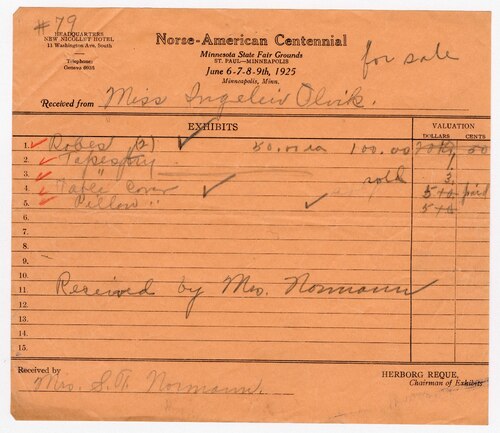 #79
HEADQUARTERS
NEW NICOLLET HOTEL
11 Washington Ave. South
Telephone
Geneva 6035
Norse-American Centennial
Minnesota State Fair Grounds
ST. PAUL—MINNEAPOLIS
June 6-7-8-9th, 1925
Minneapolis, Minn.
for sale
Received from Miss Ingeleiv Olvik.
EXHIBITS
VALUATION
DOLLARS CENTS
1. Robes (2) 50.00 ea 100.00 50
2. Tapestry 1
3. " sold 3
4. Table Cover 5 paid
5. Pillow " 5
6.
7.
8.
9.
10.
11. Received by Mrs. Normann
12.
13.
14.
15.
Received by
Mrs. S.T. Normann.
HERBORG REQUE,
Chairman of Exhibits